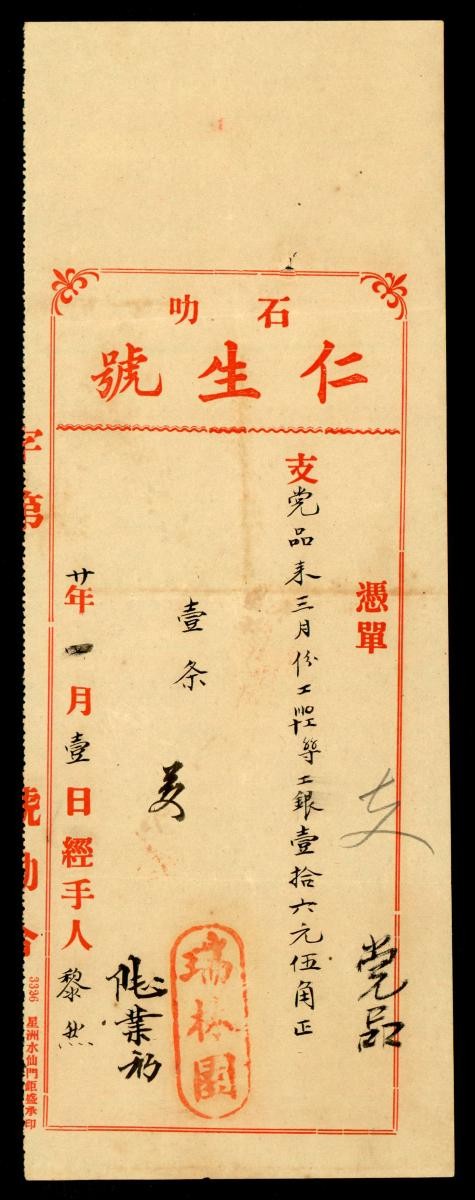 石叻
仁生號
憑單
支
党品
支党品来三月份工
工銀壹拾六元伍角正
壹条
瑞林園
廿年 月壹日經手人黎
字第 號
3336 星洲水仙門鉅盛承印